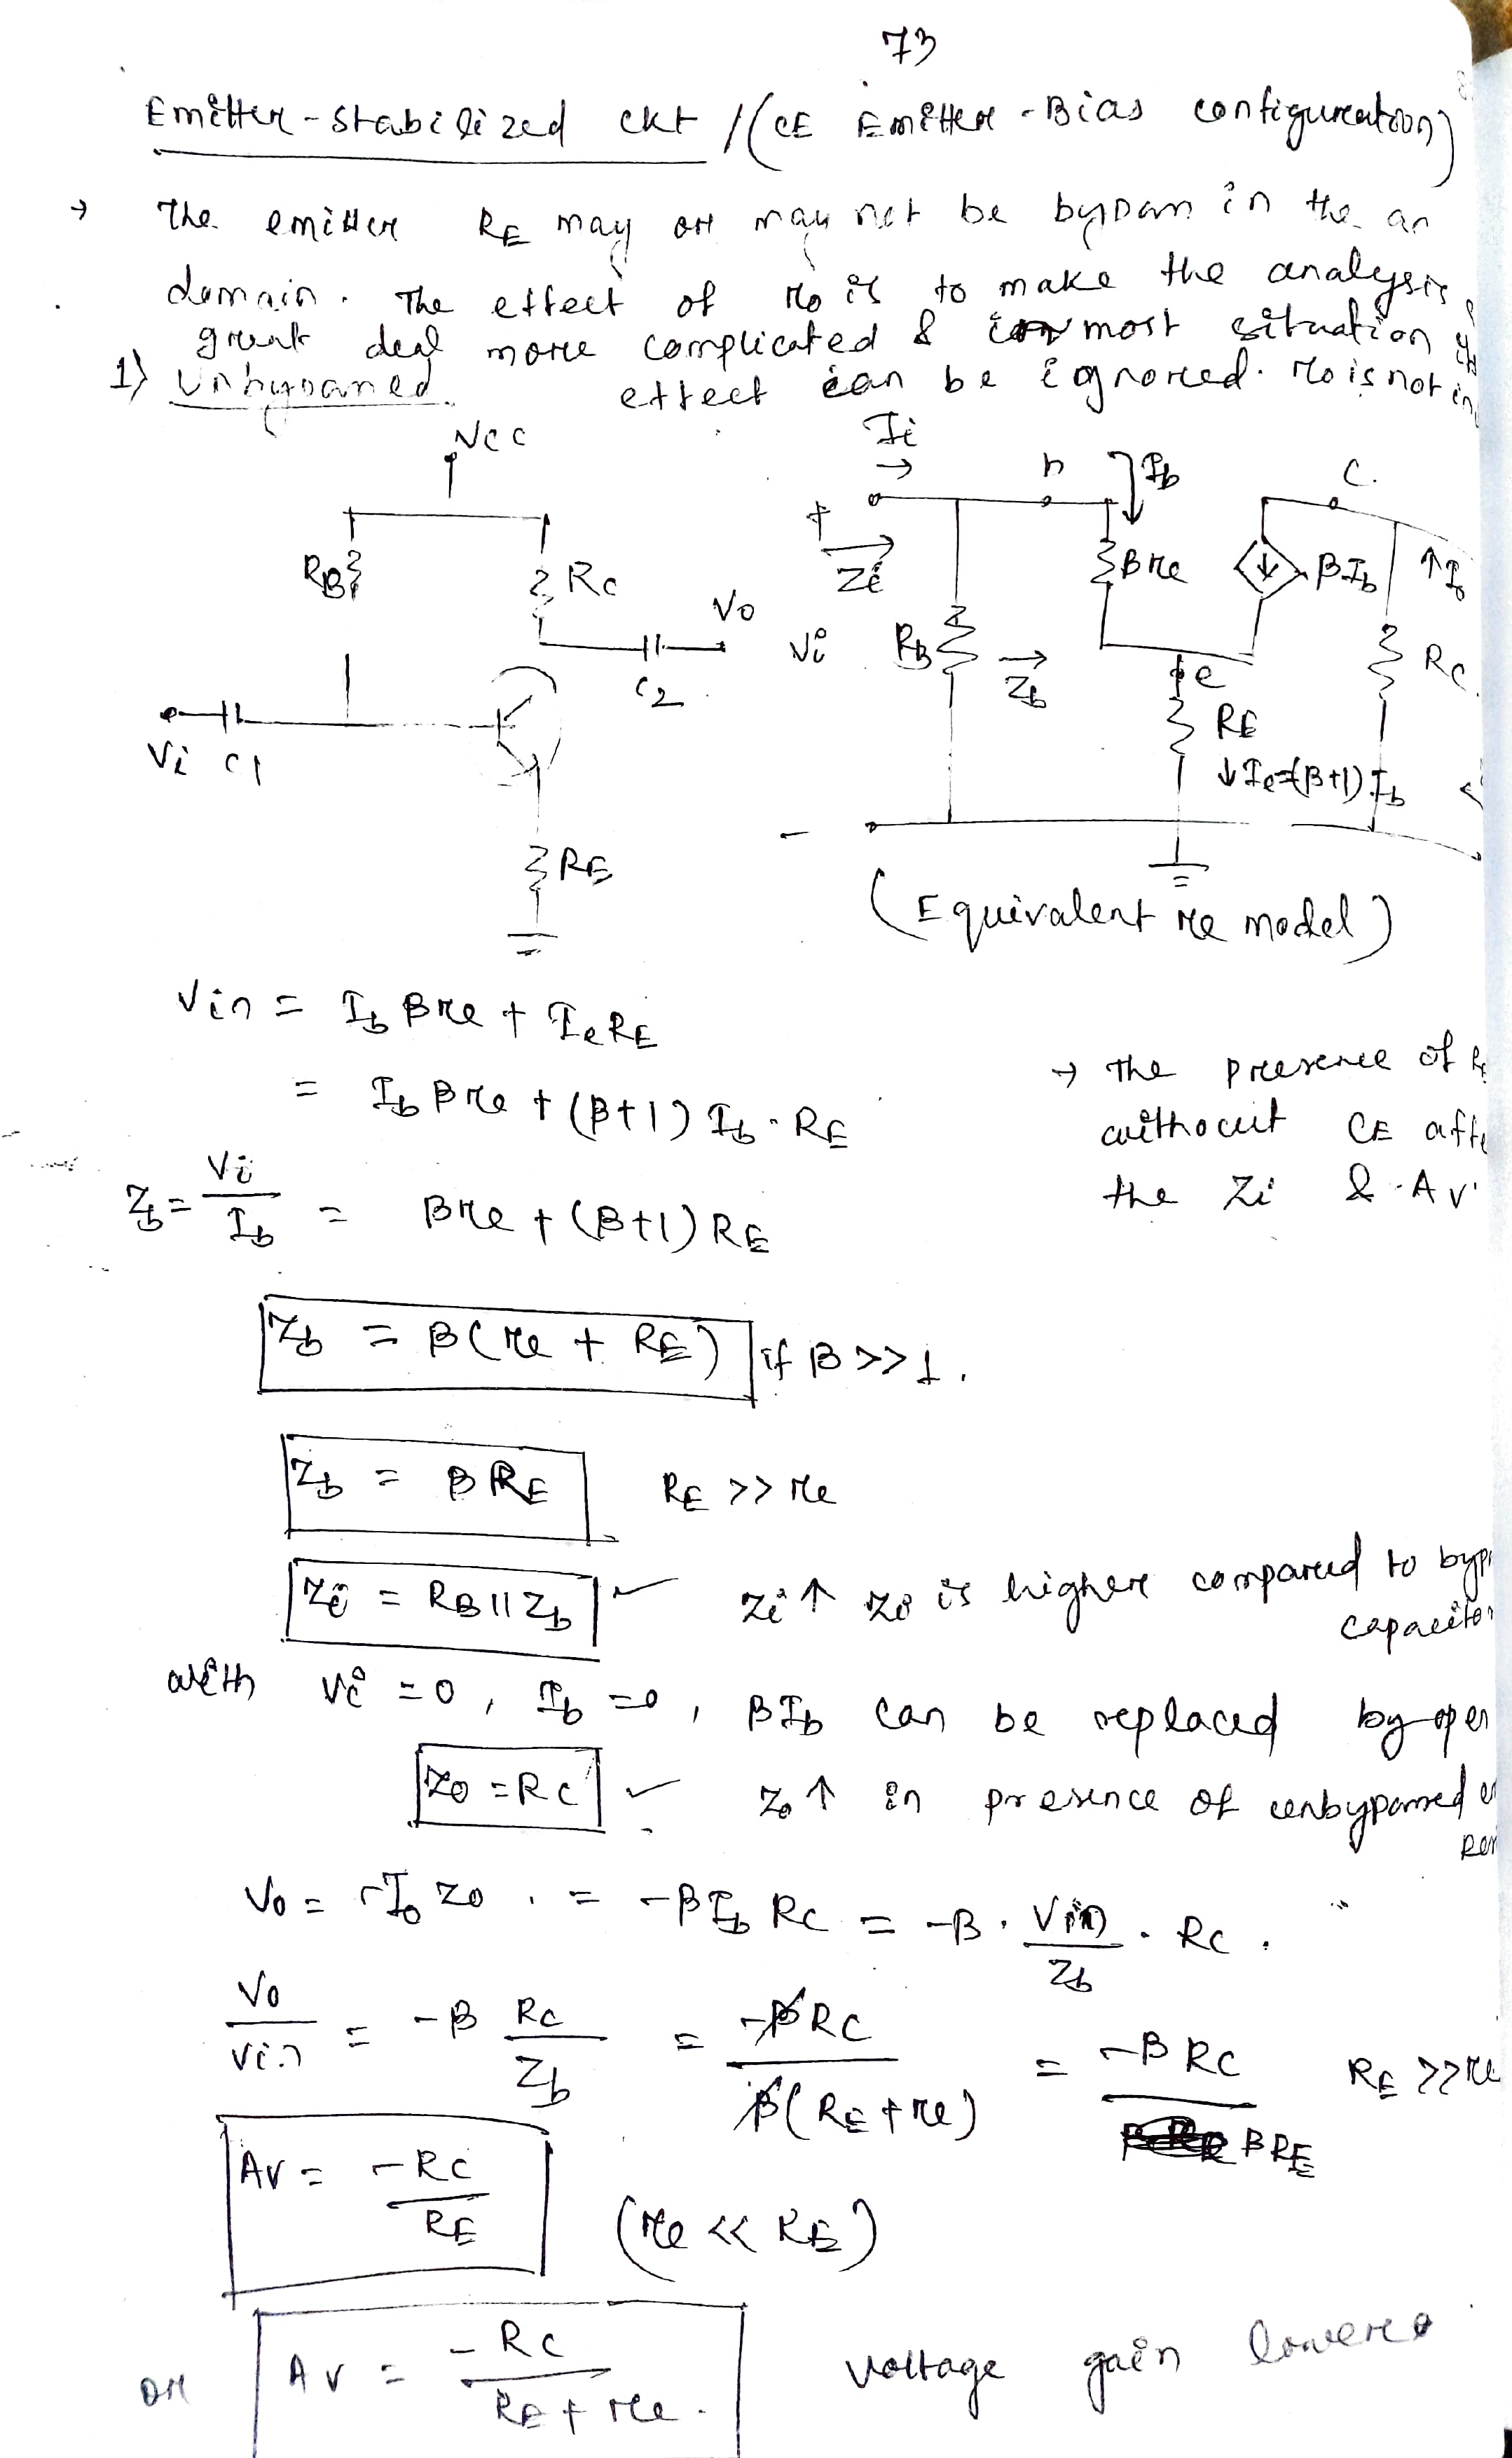 73
Emitter-Stabilized ckt / (CE Emitter-Bias configuration)
→ The emitter RE may or may not be bypass in the
domain. The effect of ro is to make the analysis
great deal more complicated & most situation
1) Unbypassed. effect can be ignored. ro is not
VCC
RB
RC
Vo
C2
Vi C1
RE
Ii
b
Ib
C.
+
Zi
Vi
RB
Zb
βre
βIb
↑Io
RC
e
RE
↓Ie=(β+1)Ib
-
(Equivalent re model)
Vin = Ib βre + IeRE
= Ib βre + (β+1) Ib . RE
Zb = Vi/Ib = βre + (β+1) RE
→ The presence of
without CE
the Zi & Av
Zb = β(re + RE) if β >> 1.
Zb = βRE RE >> re
Zi = RB || Zb ✓ Zi ↑ Zi is higher compared to
capacitor
with Vi = 0, Ib = 0, βIb can be replaced by
Zo = RC ✓ Zo ↑ in presence of unbypassed
Vo = -Io Zo = -βIb RC = -β . Vin/Zb . RC .
Vo/Vin = -β RC/Zb = -βRC/β(RE+re) = -βRC/βRE RE >> re
Av = -RC/RE (re << RE)
or Av = -RC/RE + re . Voltage gain lowered